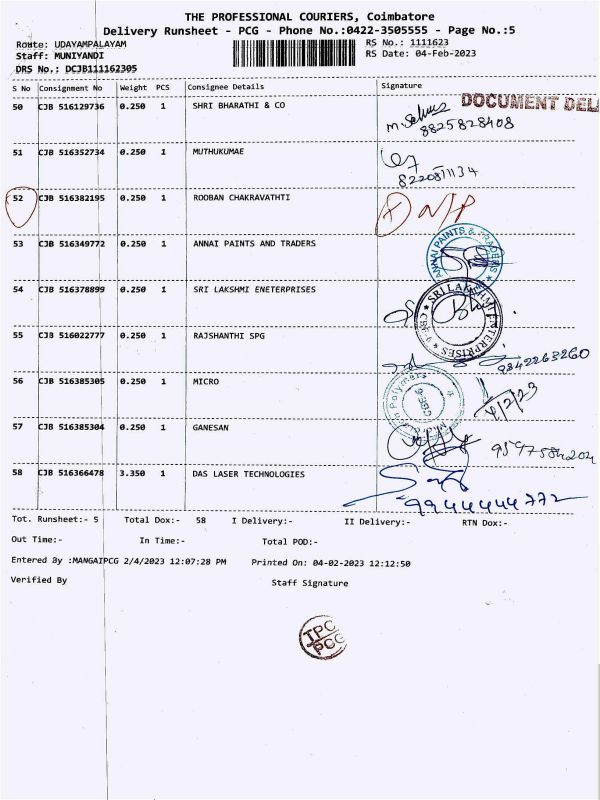 THE PROFESSIONAL COURIERS, Coimbatore
Delivery Runsheet - PCG - Phone No.:0422-3505555 - Page No.:5
Route: UDAYAMPALAYAM RS No.: 1111623
Staff: MUNIYANDI RS Date: 04-Feb-2023
DRS No.: DCJB111162305
S No Consignment No Weight PCS Consignee Details Signature
DOCUMENT DEL
50 CJB 516129736 0.250 1 SHRI BHARATHI & CO
8825828408
51 CJB 516352734 0.250 1 MUTHUKUMAE
8220811134
52 CJB 516382195 0.250 1 ROOBAN CHAKRAVATHTI N/P
53 CJB 516349772 0.250 1 ANNAI PAINTS AND TRADERS
ANNAI PAINTS & TRADERS
54 CJB 516378899 0.250 1 SRI LAKSHMI ENETERPRISES
SRI LAKSHMI ENTERPRISES
55 CJB 516022777 0.250 1 RAJSHANTHI SPG
9842263260
56 CJB 516385305 0.250 1 MICRO
Polymers
4/2/23
57 CJB 516385304 0.250 1 GANESAN
58 CJB 516366478 3.350 1 DAS LASER TECHNOLOGIES
9944444772
Tot. Runsheet:- 5 Total Dox:- 58 I Delivery:- II Delivery:- RTN Dox:-
Out Time:- In Time:- Total POD:-
Entered By :MANGAIPCG 2/4/2023 12:07:28 PM Printed On: 04-02-2023 12:12:50
Verified By Staff Signature
TPC
PCG